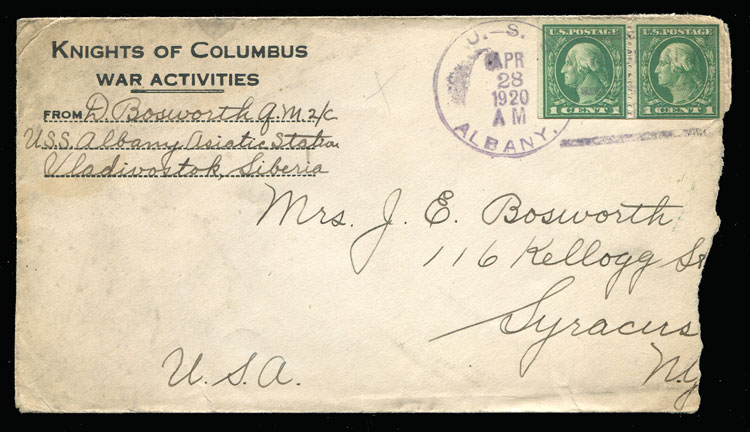 KNIGHTS OF COLUMBUS
WAR ACTIVITIES
FROM D. Bosworth Q.M 2/c
U.S.S. Albany Asiatic Station
Vladivostok, Siberia
U.-S.
APR
28
1920
AM
ALBANY.
U.S. POSTAGE
1 CENT 1
U.S. POSTAGE
1 CENT 1
Mrs. J. E. Bosworth
116 Kellogg St
Syracus
N.Y
U.S.A.